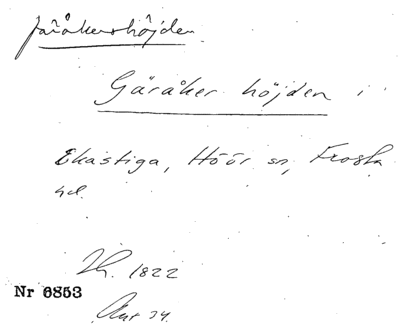 färåkershöjden
Gäråker höjden i
Ekastiga, Höör sn, Frosta
hd.
1822
Nr 6853